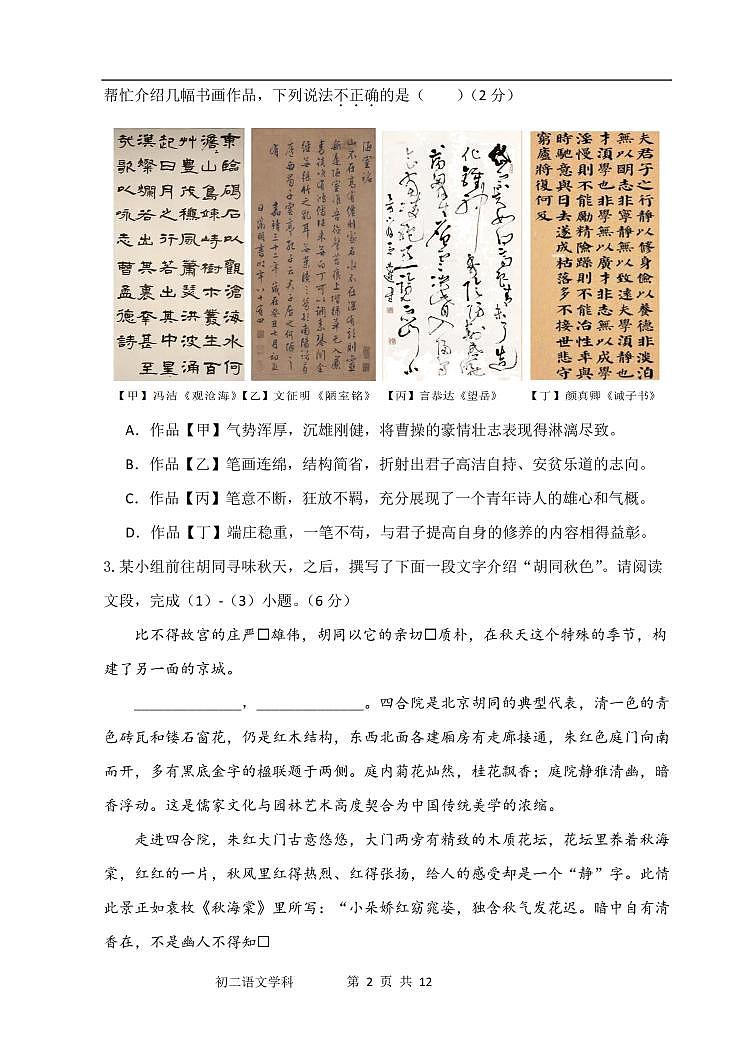 帮忙介绍几幅书画作品，下列说法不正确的是（　　）（2 分）
東臨碣石以觀滄海水何
澹澹山島竦峙樹木叢生百
艸豐茂穐風蕭瑟洪波涌
起日月之行若出其中星
漢燦爛若出其裏幸甚至
哉歌以咏志 曹孟德詩
陋室銘
山不在高有僊則名水不在深有龍則靈
斯是陋室惟吾德馨苔痕上堦綠草色入簾
青談笑有鴻儒往來無白丁可以調素琴閱金
經無絲竹之亂耳無案牘之勞形南陽諸葛
廬西蜀子雲亭孔子云何陋之有
夫君子之行靜以修身儉以養德非淡泊
無以明志非寧靜無以致遠夫學須靜也
才須學也非學無以廣才非志無以成學
淫慢則不能勵精險躁則不能治性年與
時馳意與日去遂成枯落多不接世悲守
窮廬將復何及
【甲】冯洁《观沧海》【乙】文征明《陋室铭》 【丙】言恭达《望岳》 【丁】颜真卿《诫子书》
A．作品【甲】气势浑厚，沉雄刚健，将曹操的豪情壮志表现得淋漓尽致。
B．作品【乙】笔画连绵，结构简省，折射出君子高洁自持、安贫乐道的志向。
C．作品【丙】笔意不断，狂放不羁，充分展现了一个青年诗人的雄心和气概。
D．作品【丁】端庄稳重，一笔不苟，与君子提高自身的修养的内容相得益彰。
3.某小组前往胡同寻味秋天，之后，撰写了下面一段文字介绍“胡同秋色”。请阅读
文段，完成（1）-（3）小题。（6 分）
比不得故宫的庄严□雄伟，胡同以它的亲切□质朴，在秋天这个特殊的季节，构
建了另一面的京城。
______________，______________。四合院是北京胡同的典型代表，清一色的青
色砖瓦和镂石窗花，仍是红木结构，东西北面各建厢房有走廊接通，朱红色庭门向南
而开，多有黑底金字的楹联题于两侧。庭内菊花灿然，桂花飘香；庭院静雅清幽，暗
香浮动。这是儒家文化与园林艺术高度契合为中国传统美学的浓缩。
走进四合院，朱红大门古意悠悠，大门两旁有精致的木质花坛，花坛里养着秋海
棠，红红的一片，秋风里红得热烈、红得张扬，给人的感受却是一个“静”字。此情
此景正如袁枚《秋海棠》里所写：“小朵娇红窈窕姿，独含秋气发花迟。暗中自有清
香在，不是幽人不得知□
初二语文学科　　　第 2 页 共 12